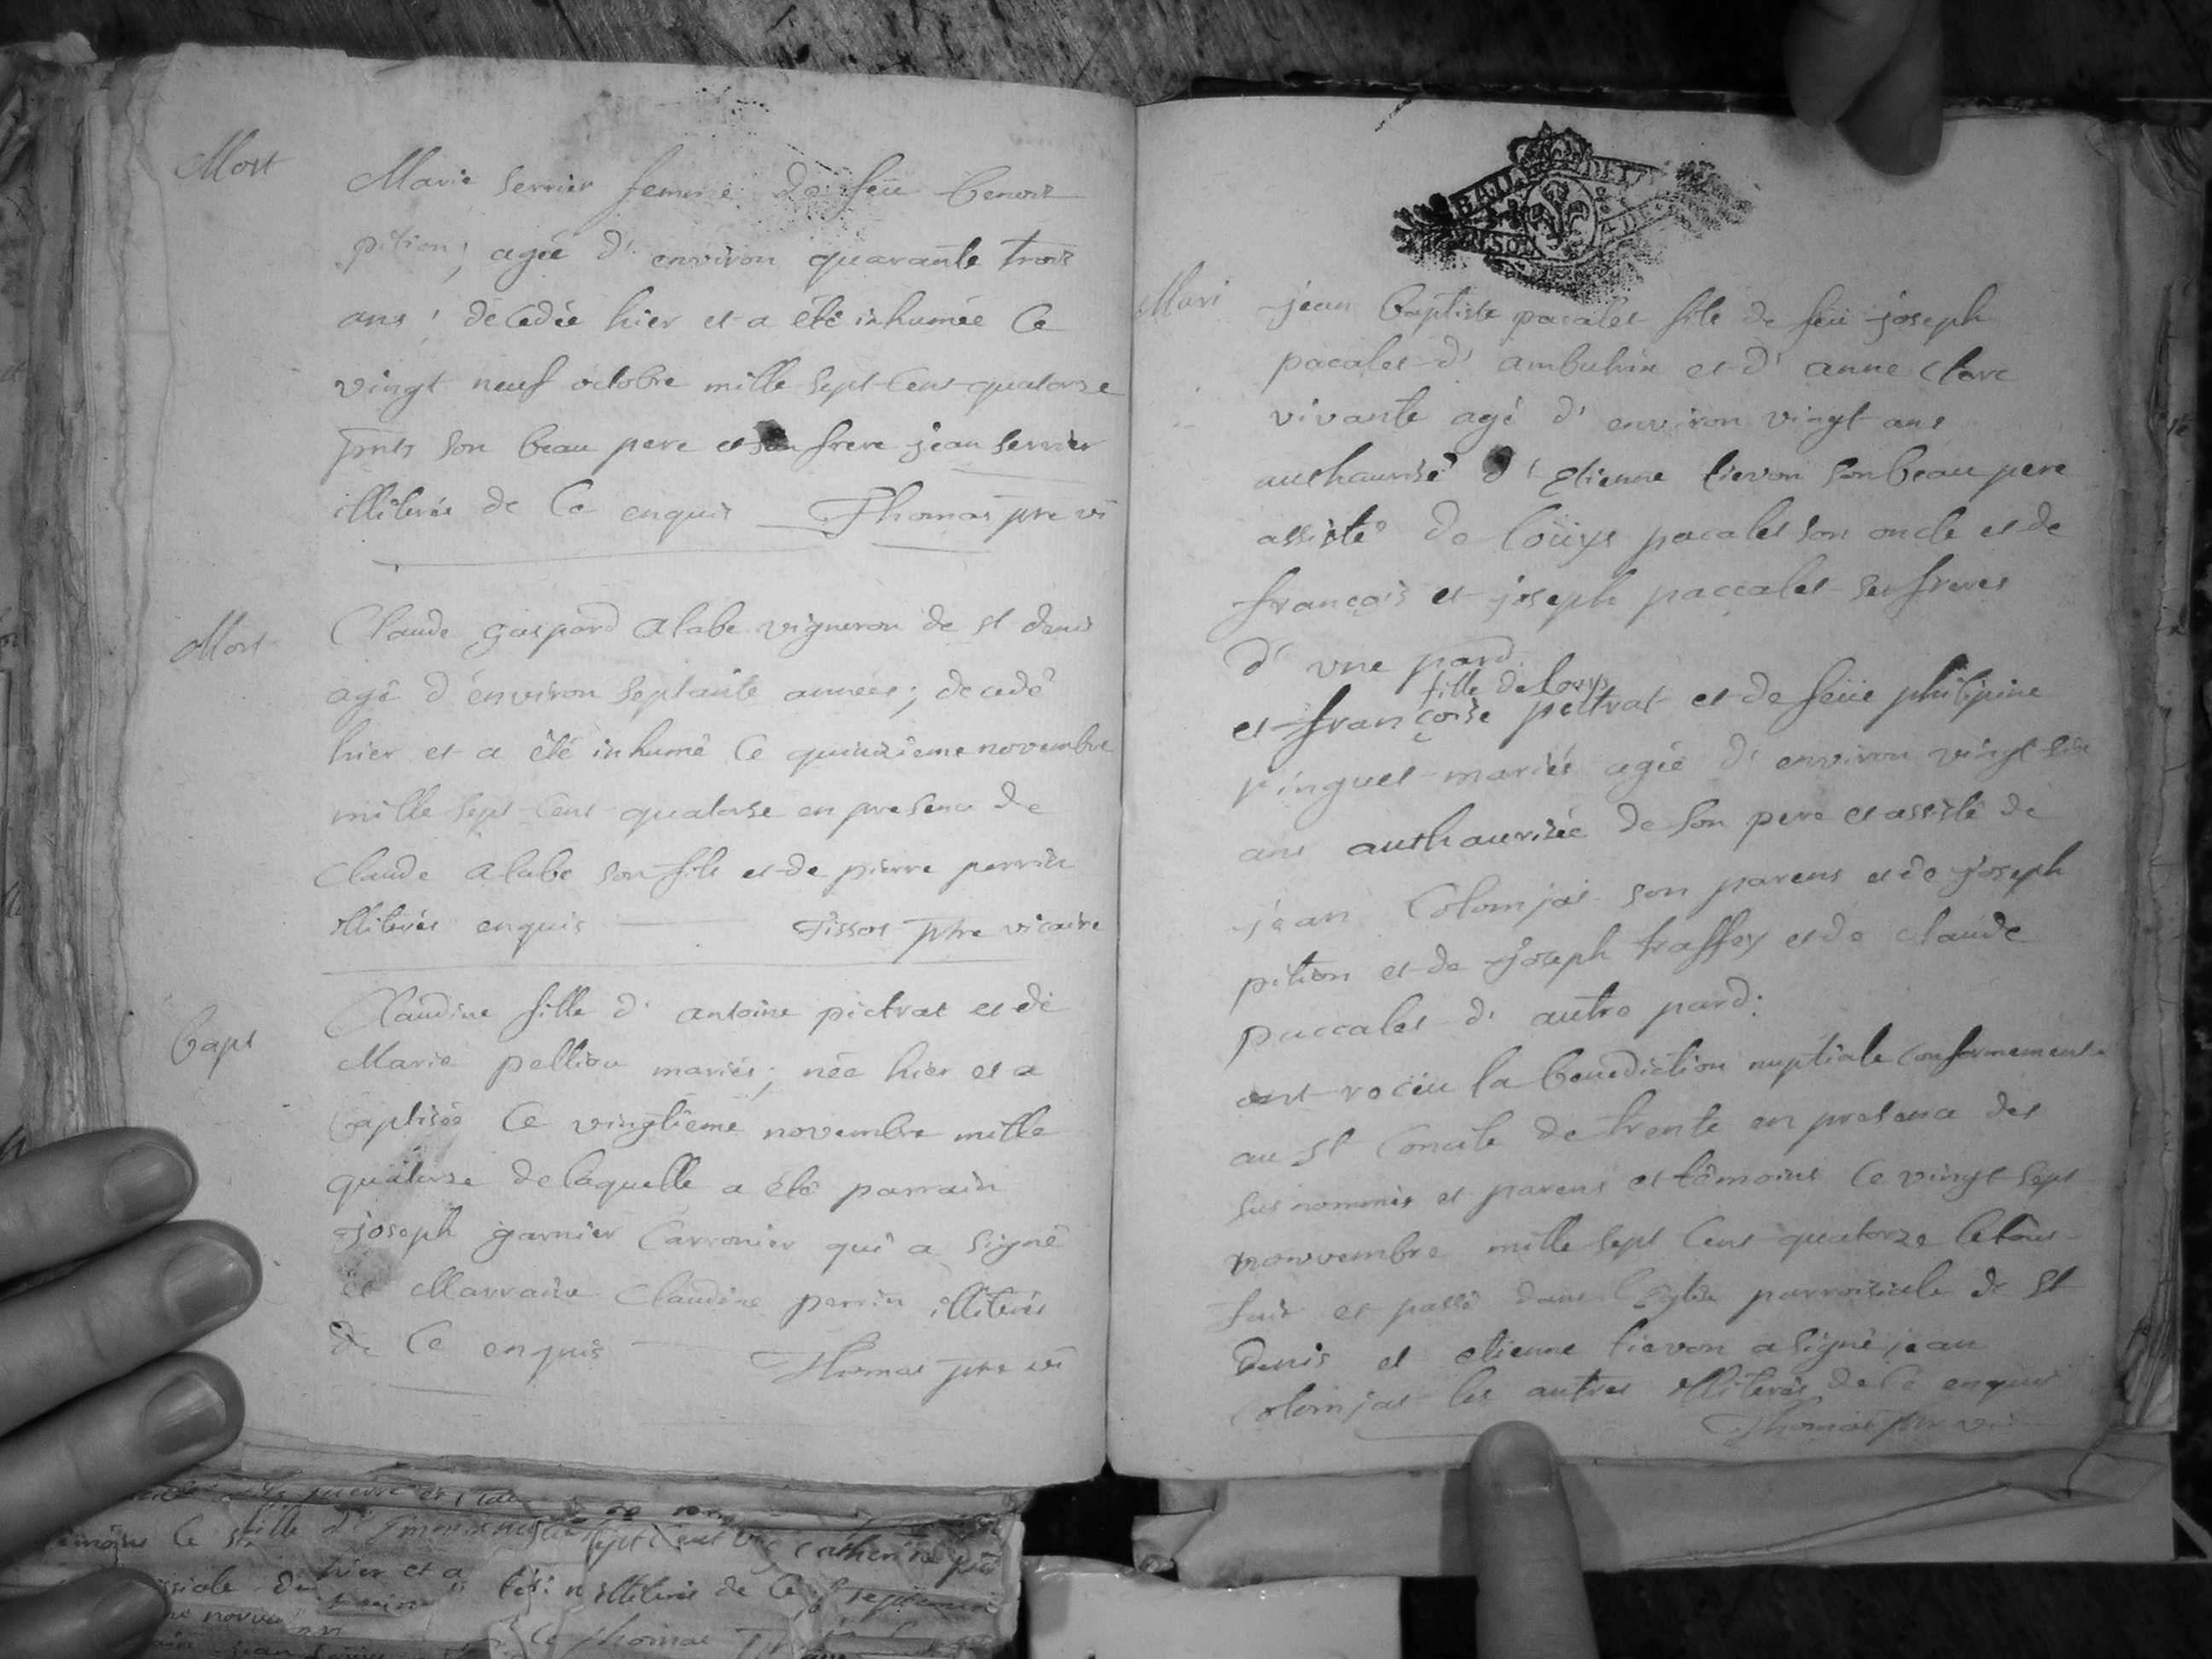 Mort
Marie serrier femme de feu benoit
pition, agée d'environ quarante trois
ans; décédée hier et a été inhumée ce
vingt neuf octobre mille sept cent quatorze
pnts son beau pere et son frere jean serrier
illiterés de ce enquis Thomas ptre vi
Mort
Claude gaspard alabe vigneron de st denis
agé d'environ septante années; decedé
hier et a été inhumé ce quinzieme novembre
mille sept cent quatorse en presence de
Claude alabe son fils et de pierre perrin
illiterés enquis Tissot ptre vicaire
bapt
Claudine fille d'antoine pictrat et de
Marie pelliou mariés; née hier et a
baptisée ce vingtieme novembre mille
quatorse de laquelle a été parrain
joseph garnier carronier qui a signé
et Marraine Claudine perrin illiterés
de ce enquis Thomas ptre vi
BAIL
Mari
jean baptiste pacalet fils de feu joseph
pacalet d'ambutrix et d'anne clerc
vivante agé d'environ vingt ans
authaurisé d'Etienne lievon son beau pere
assisté de loüys pacalet son oncle et de
françois et joseph paccalet ses freres
d'une pard.
fille de louys
et françoise pectrat et de feüe philipine
pinguet mariés agée d'environ vingt six
ans authaurisée de son pere et assisté de
jean Colomjat son parens et de joseph
pition et de joseph traffey et de claude
paccalet d'autre pard:
ont reçeu la benediction nuptiale conformement
au St Concile de trente en presence des
sus nommés et parens et témoins ce vingt sept
nouvembre mille sept cent quatorze le tous
fait et passé dans l'Eglise parroissiale de St
Denis et etienne lievon a signé jean
Colomjat les autres illiterés de ce enquis
Thomas ptre vi
hier et a
illiterés de ce
ce thomas